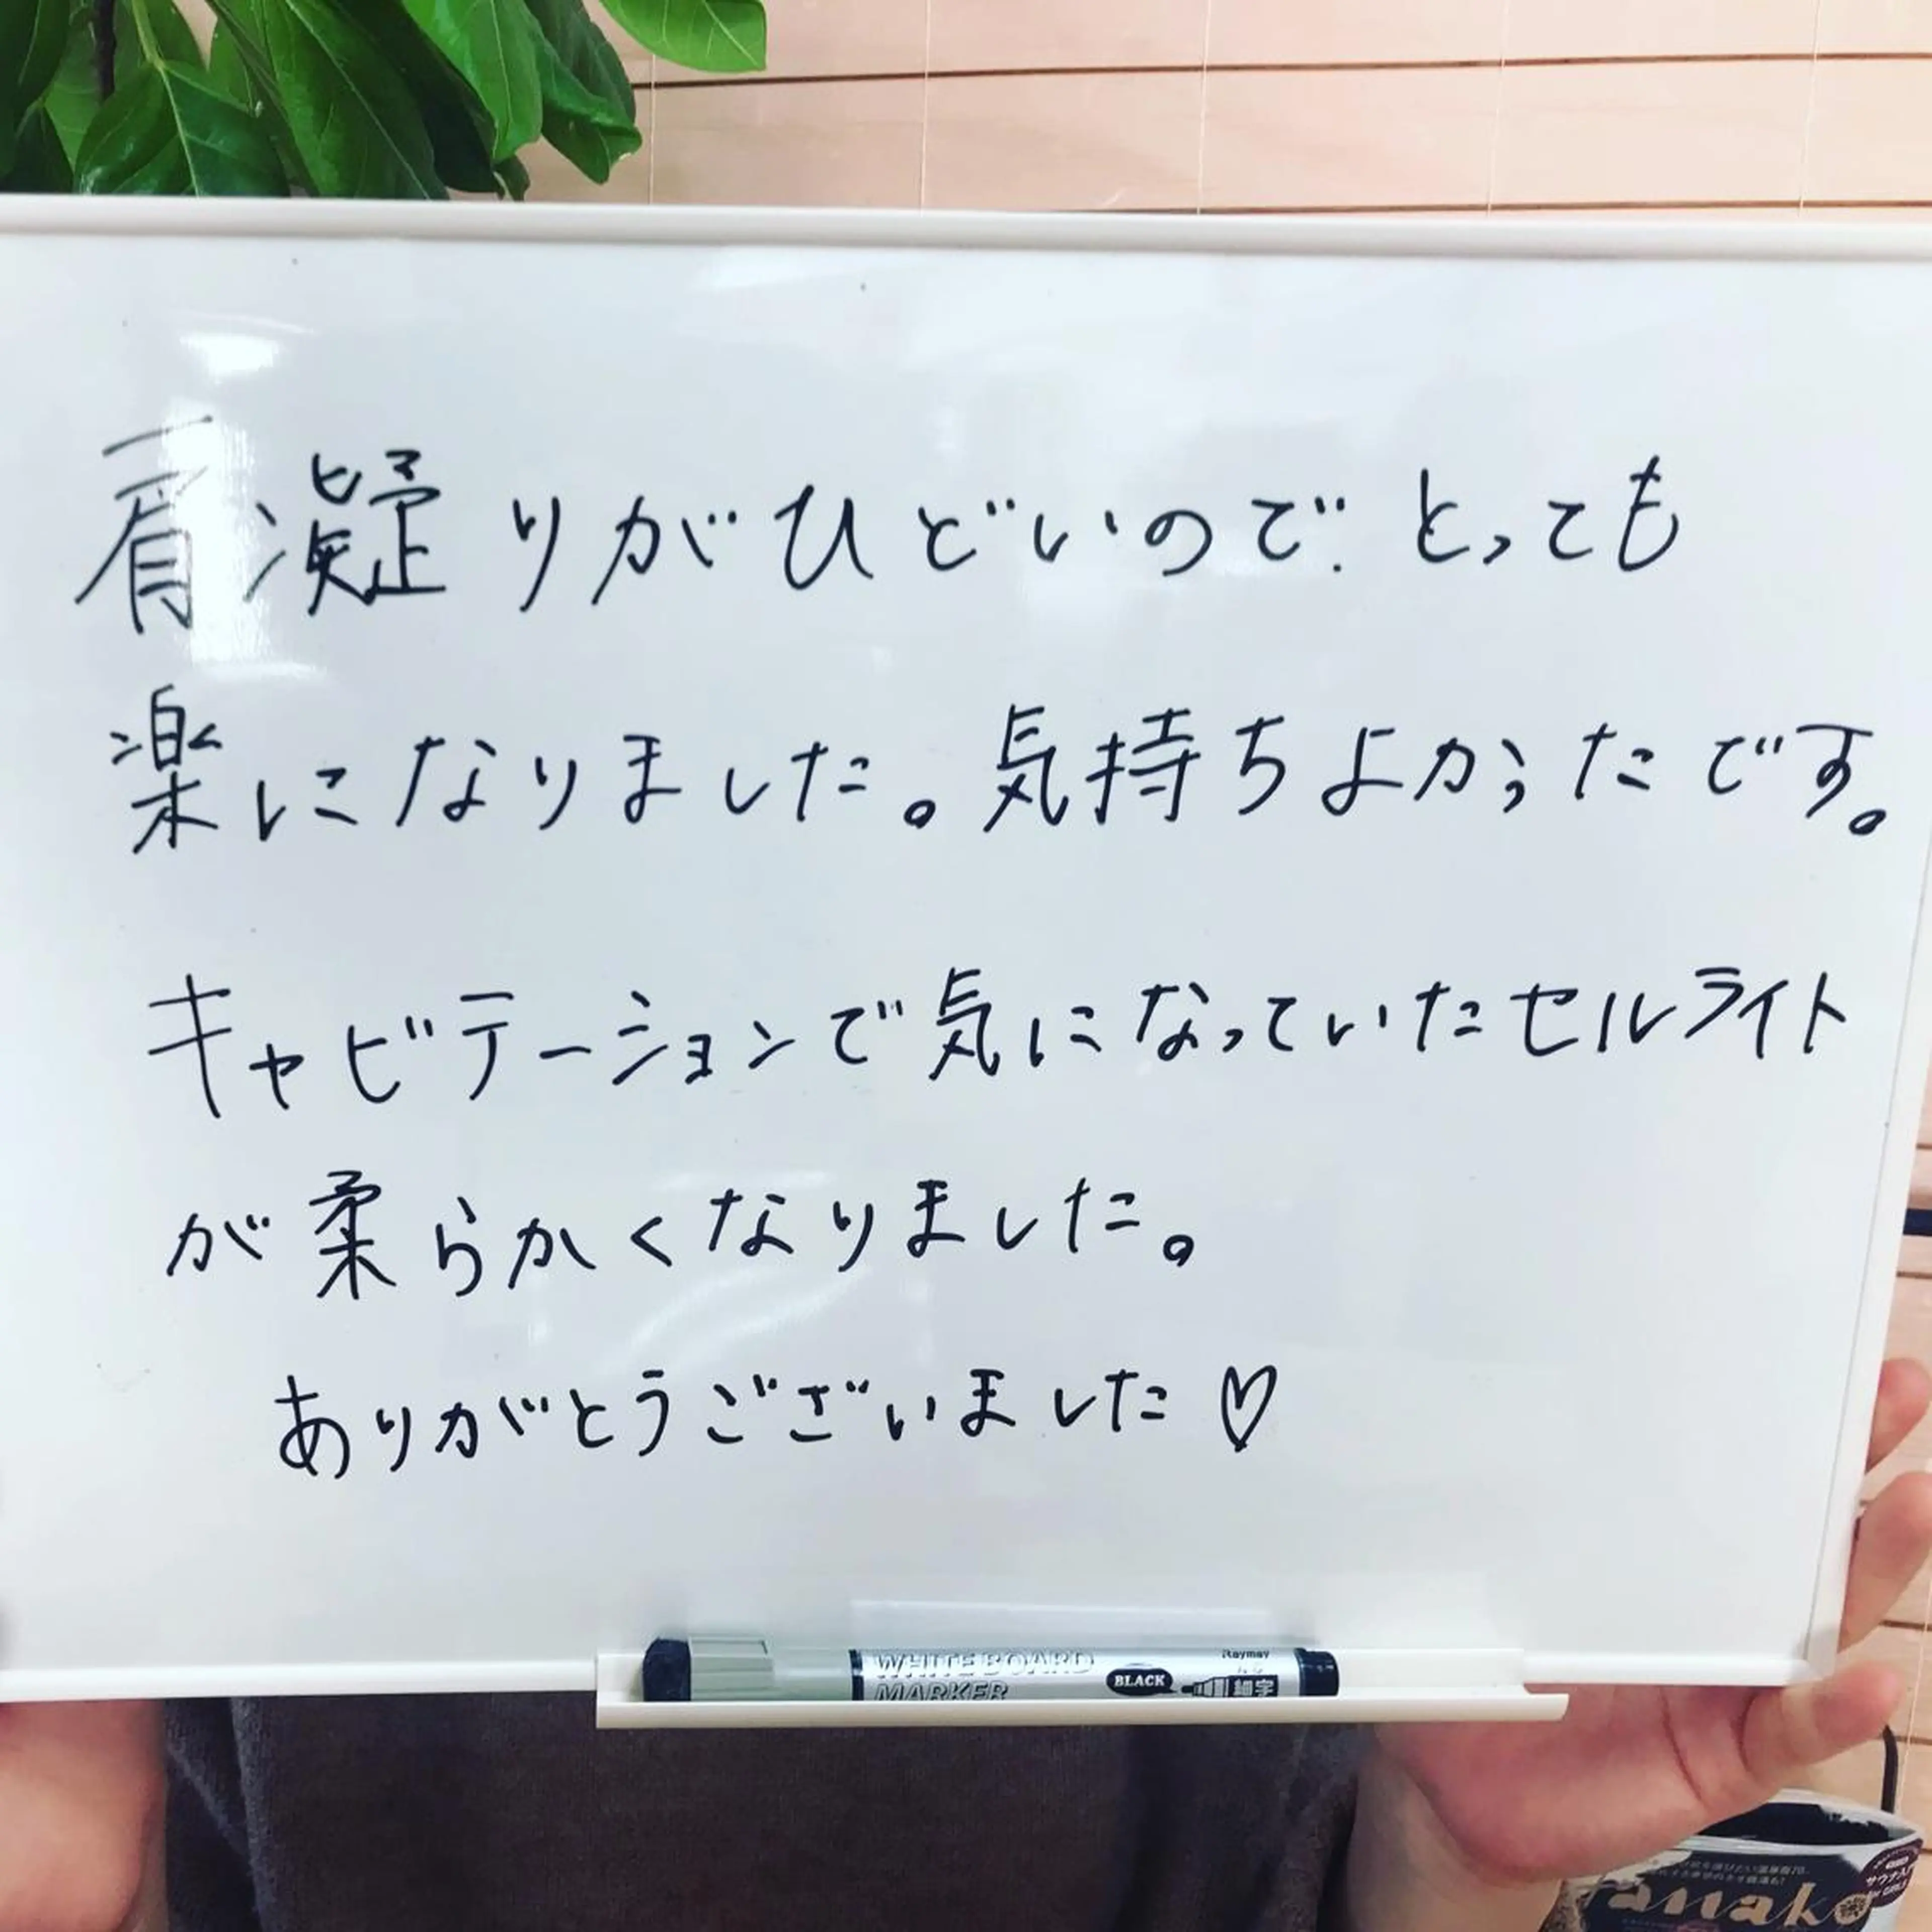 肩凝りがひどいので、とっても
楽になりました。気持ちよかったです。
キャビテーションで気になっていたセルライト
が柔らかくなりました。
ありがとうございました♡
WHITEBOARD
MARKER
BLACK
Raymay
細字
anako